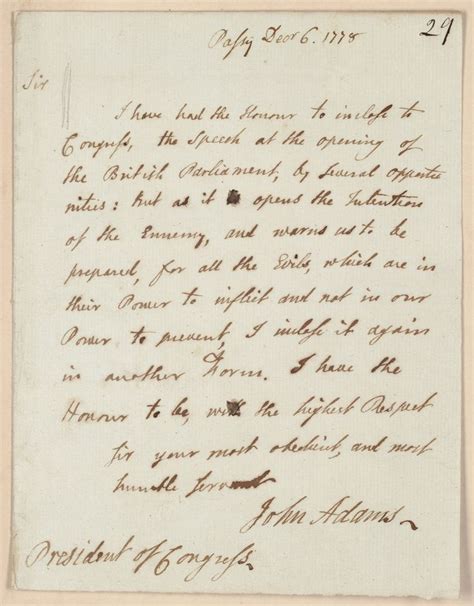 29
Passy Decr 6. 1778
Sir
I have had the Honour to inclose to
Congress, the Speech at the opening of
the British Parliament, by Several opportu
nities: But as it opens the Intention
of the Ennemy, and warns us to be
prepared, for all the Evils, which are in
their Power to inflict and not in our
Power to prevent, I inclose it again
in another Form. I have the
Honour to be, with the highest Respect
Sir your most obedient, and most
humble Servant
John Adams
President of Congress